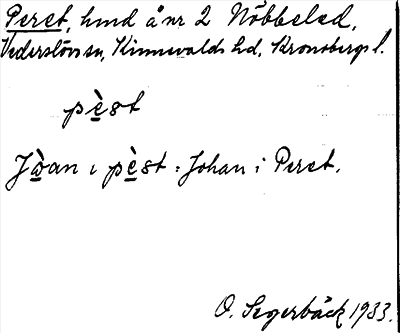 Peret, hmd å nr 2 Nöbbeled,
Vederslövs sn, Kinnevalds hd, Kronobergs l.
pèst
Jòan ı pèst : Johan i Peret.
O. Segerbäck 1933.